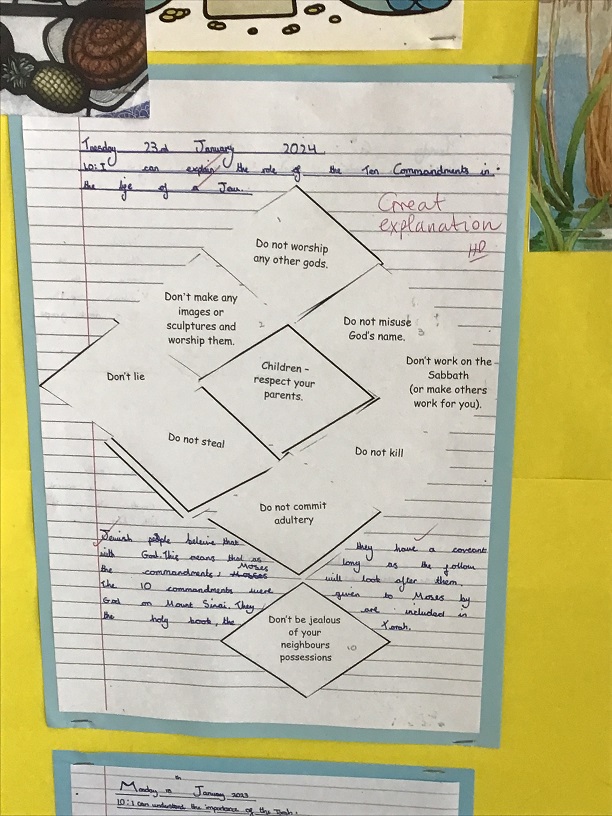 Tuesday 23rd January 2024
LO: I can explain the role of the Ten Commandments in
the life of a Jew.
Great
explanation
HP
Do not worship
any other gods.
Don't make any
images or
sculptures and
worship them.
2
Do not misuse
God's name.
3
Don't work on the
Sabbath
(or make others
work for you).
Don't lie
Children -
respect your
parents.
Do not steal
Do not kill
Do not commit
adultery
Jewish people beleive that they have a coveant
with God. This means that as long as the follow
the commandments, Moses will look after them.
The 10 commandments were given to Moses by
God on Mount Sinai. They are included in
the holy book, the Torah.
Don't be jealous
of your
neighbours
possessions
10
Monday January 2023
LO: I can understand the importance of the Torah.